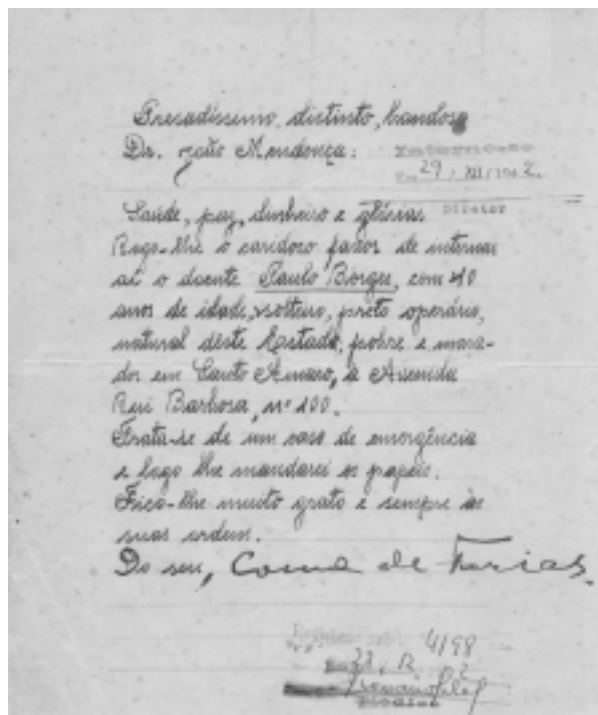 Presadíssimo, distinto, bondoso
Dr. João Mendonça:
Internese
Em 29 / XII / 1942.
Diretor
Saúde, paz, dinheiro e glórias
Rogo-lhe o caridoso favor de internar
aí o doente Paulo Borges, com 40
anos de idade, solteiro, preto operário,
natural dêste Estado, pobre e mora-
dor em Santo Amaro, à Avenida
Rui Barbosa, nº 100.
Trata-se de um caso de emergência
e logo lhe mandarei os papeis.
Fico-lhe muito grato e sempre às
suas ordens.
Do seu, Cosme de Farias.
4198